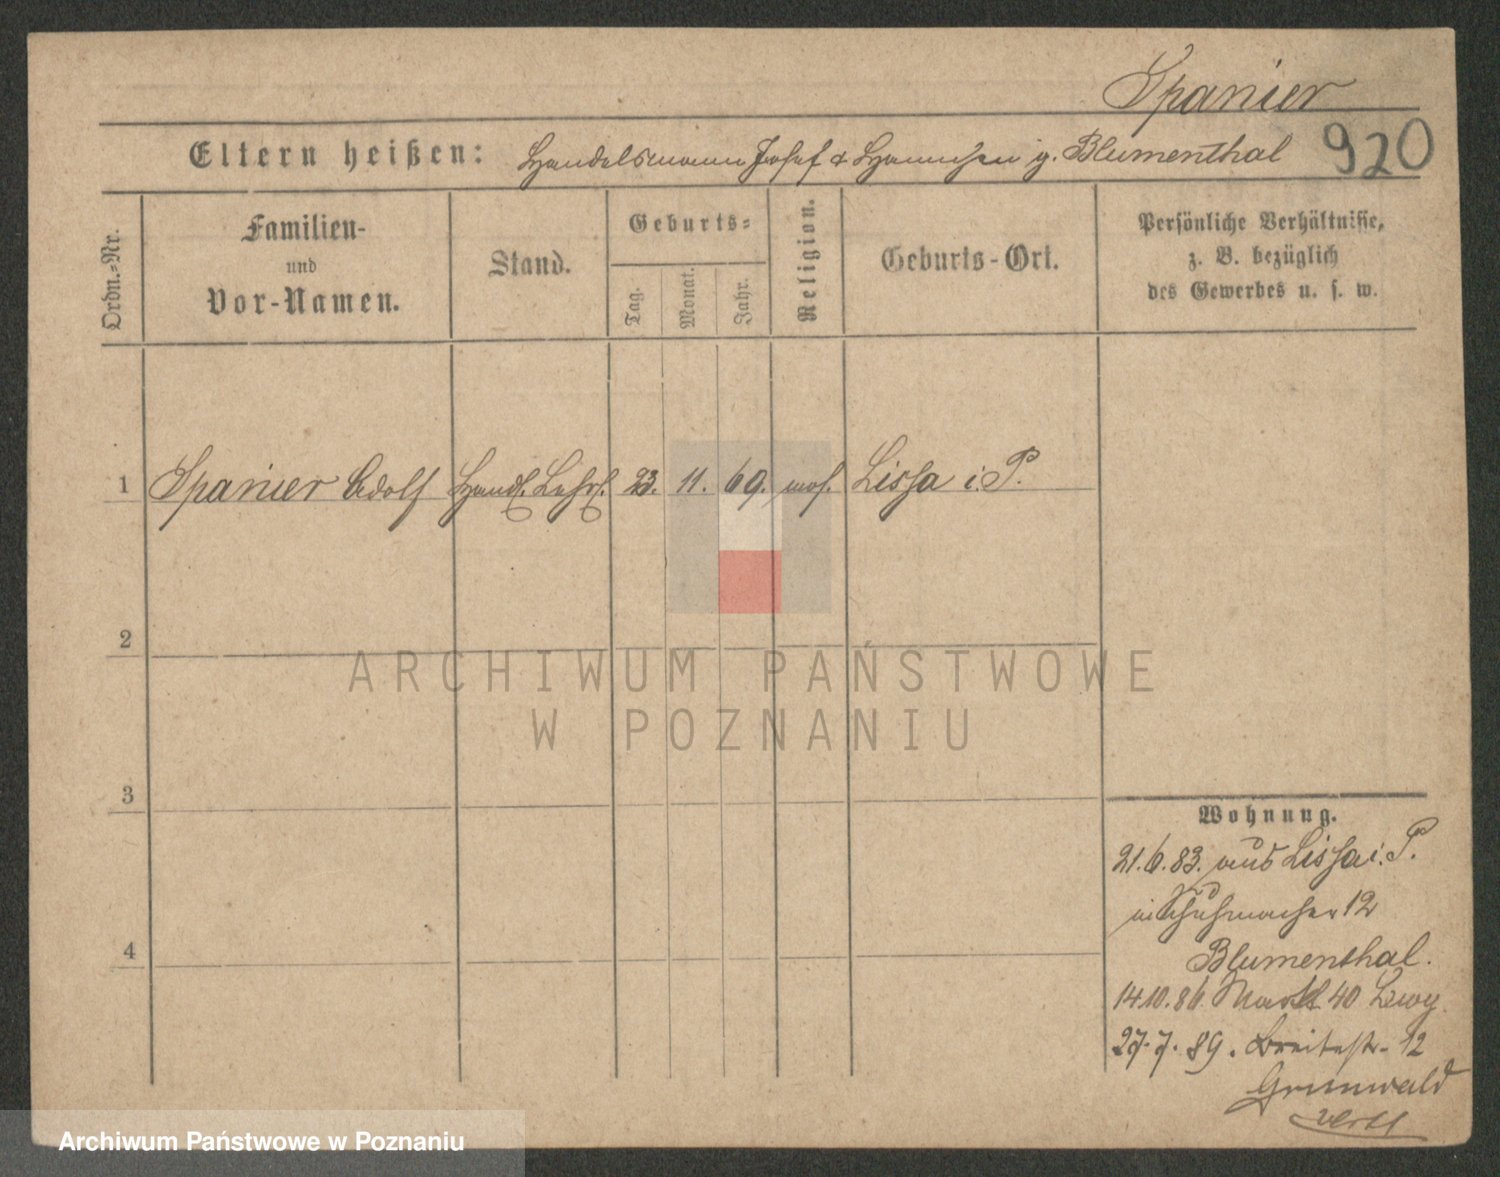 Spanier
Eltern heißen: Handelsmann Josef & Hannchen g. Blumenthal 920
Ordn.-Nr.
Familien-
und
Vor-Namen.
Stand.
Geburts-
Tag.
Monat.
Jahr.
Religion.
Geburts-Ort.
Persönliche Verhältnisse,
z. B. bezüglich
des Gewerbes u. s. w.
1 Spanier Adolf Handl. Lehrl. 23. 11. 69. mos. Lissa i. P.
2
3
4
ARCHIWUM PAŃSTWOWE
W POZNANIU
Wohnung.
21.6.83. aus Lissa i. P.
in Schuhmacher 12
Blumenthal.
14.10.86. Markt 40 Lewy
27.7.89. Breitestr. 12
Grunwald
Archiwum Państwowe w Poznaniu